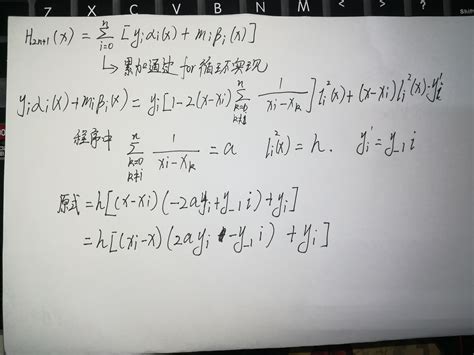 Z X C V B N M < > ?
H₂ₙ₊₁(x) = Σ_{i=0}^{n} [yᵢαᵢ(x) + mᵢβᵢ(x)]
↳ 累加通过 for 循环实现
yᵢαᵢ(x)+mᵢβᵢ(x) = yᵢ[1-2(x-xᵢ) Σ_{k=0, k≠i}^{n} 1/(xᵢ-xₖ)] lᵢ²(x) + (x-xᵢ)lᵢ²(x)·yᵢ'
程序中 Σ_{k=0, k≠i}^{n} 1/(xᵢ-xₖ) = a lᵢ²(x) = h. yᵢ' = y_1 i
原式 = h[(x-xᵢ)(-2ayᵢ+y_1 i)+yᵢ]
= h[(xᵢ-x)(2ayᵢ-y_1 i) + yᵢ]